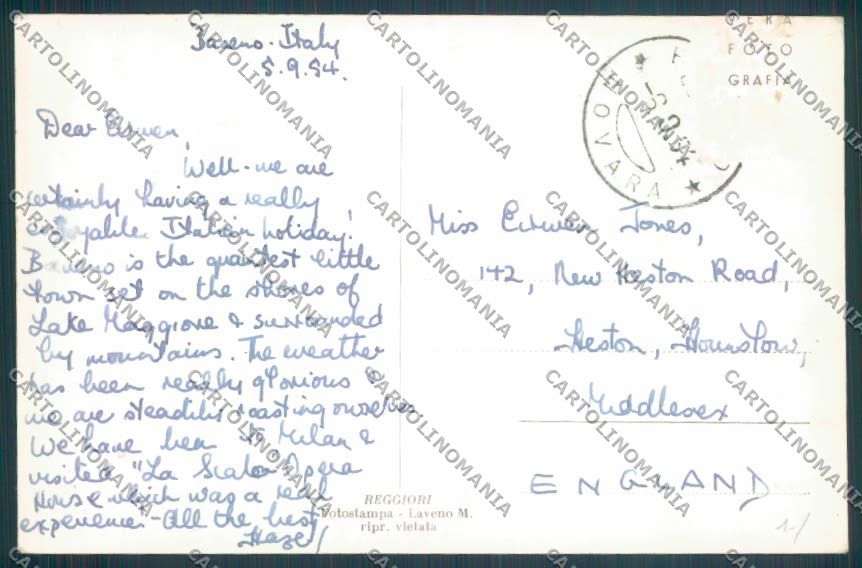 Baveno. Italy
5.9.54.
Dear Eirwen,
Well - we are
certainly having a really
enjoyable Italian holiday!
Baveno is the quaintest little
town set on the shores of
Lake Maggiore & surrounded
by mountains. The weather
has been really glorious &
we are steadily roasting ourselves
We have been to Milan &
visited "La Scala" Opera
House which was a real
experience - All the best
Hazel
VERA
FOTO
GRAFIA
NOVARA
Miss Eirwen Jones,
142, New Heston Road,
Heston, Hounslow,
Middlesex
ENGLAND
REGGIORI
Fotostampa - Laveno M.
ripr. vietata
1/
CARTOLINOMANIA